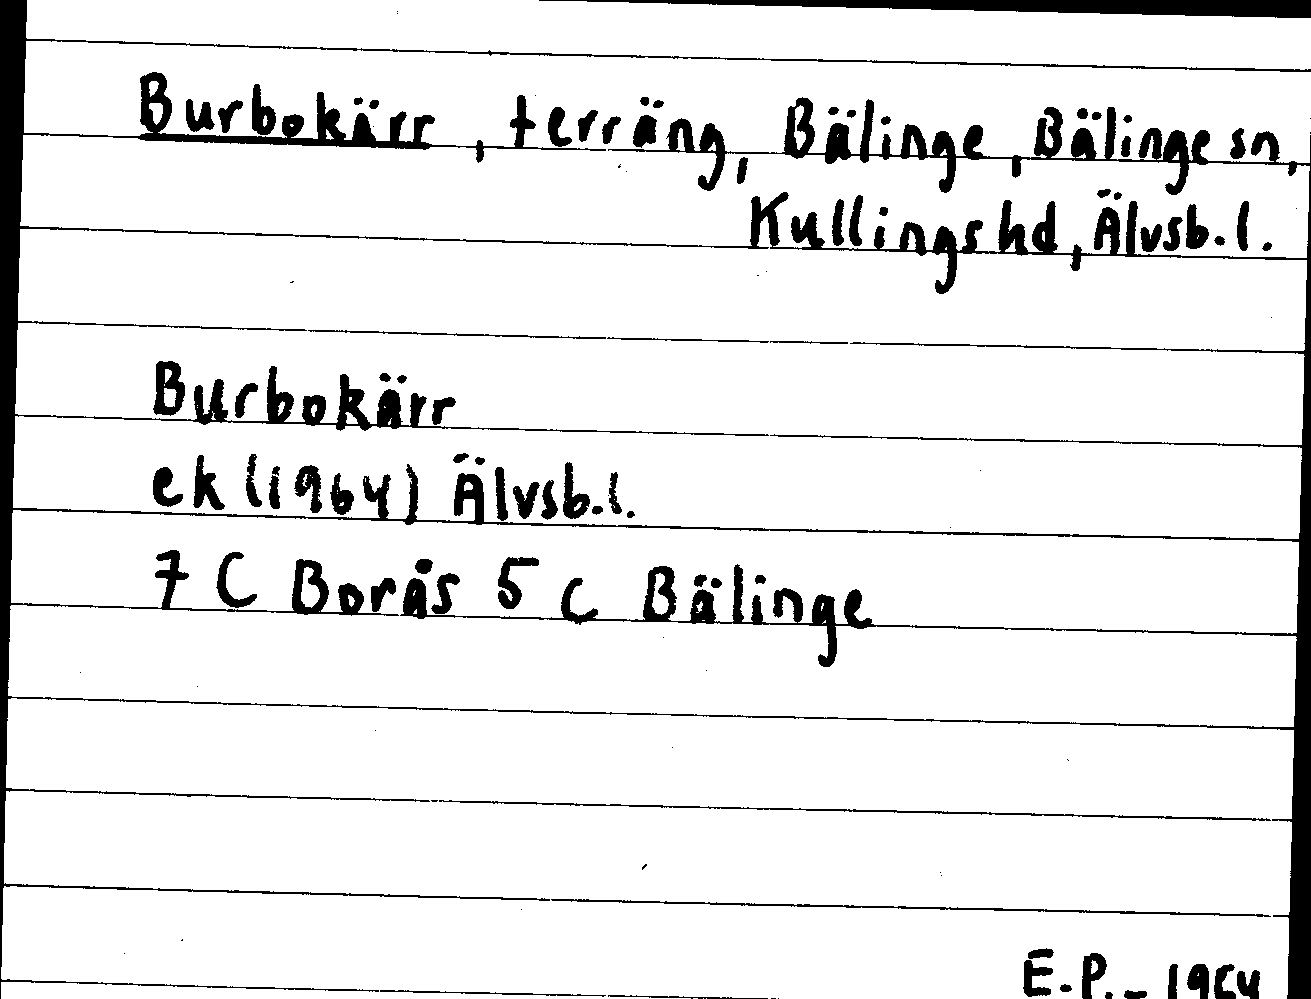 Burbokärr, terräng, Bälinge, Bälinge sn,
Kullings hd, Älvsb.l.
Burbokärr
ek (1964) Älvsb.l.
7 C Borås 5 c Bälinge
E.P. - 1964